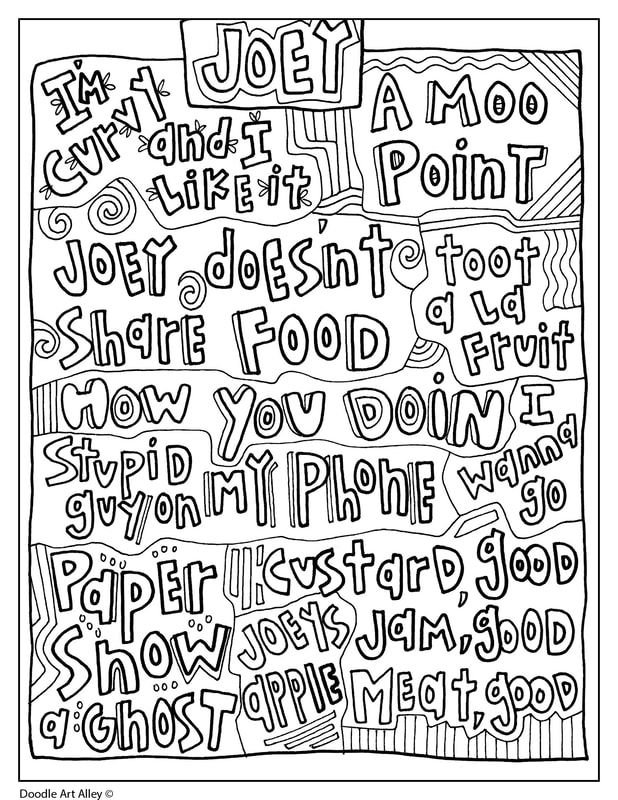 JOEY
I'm
curvy
and I
Like it
A MOO
Point
JOEY doesn't
Share FOOD
toot
a La
Fruit
HOW YOU DOIN
Stupid
guy on
MY Phone
I
wanna
go
PaPer
Snow
a GHOST
JOEYS
aPPLE
Custard, good
Jam, good
Meat, good
Doodle Art Alley ©